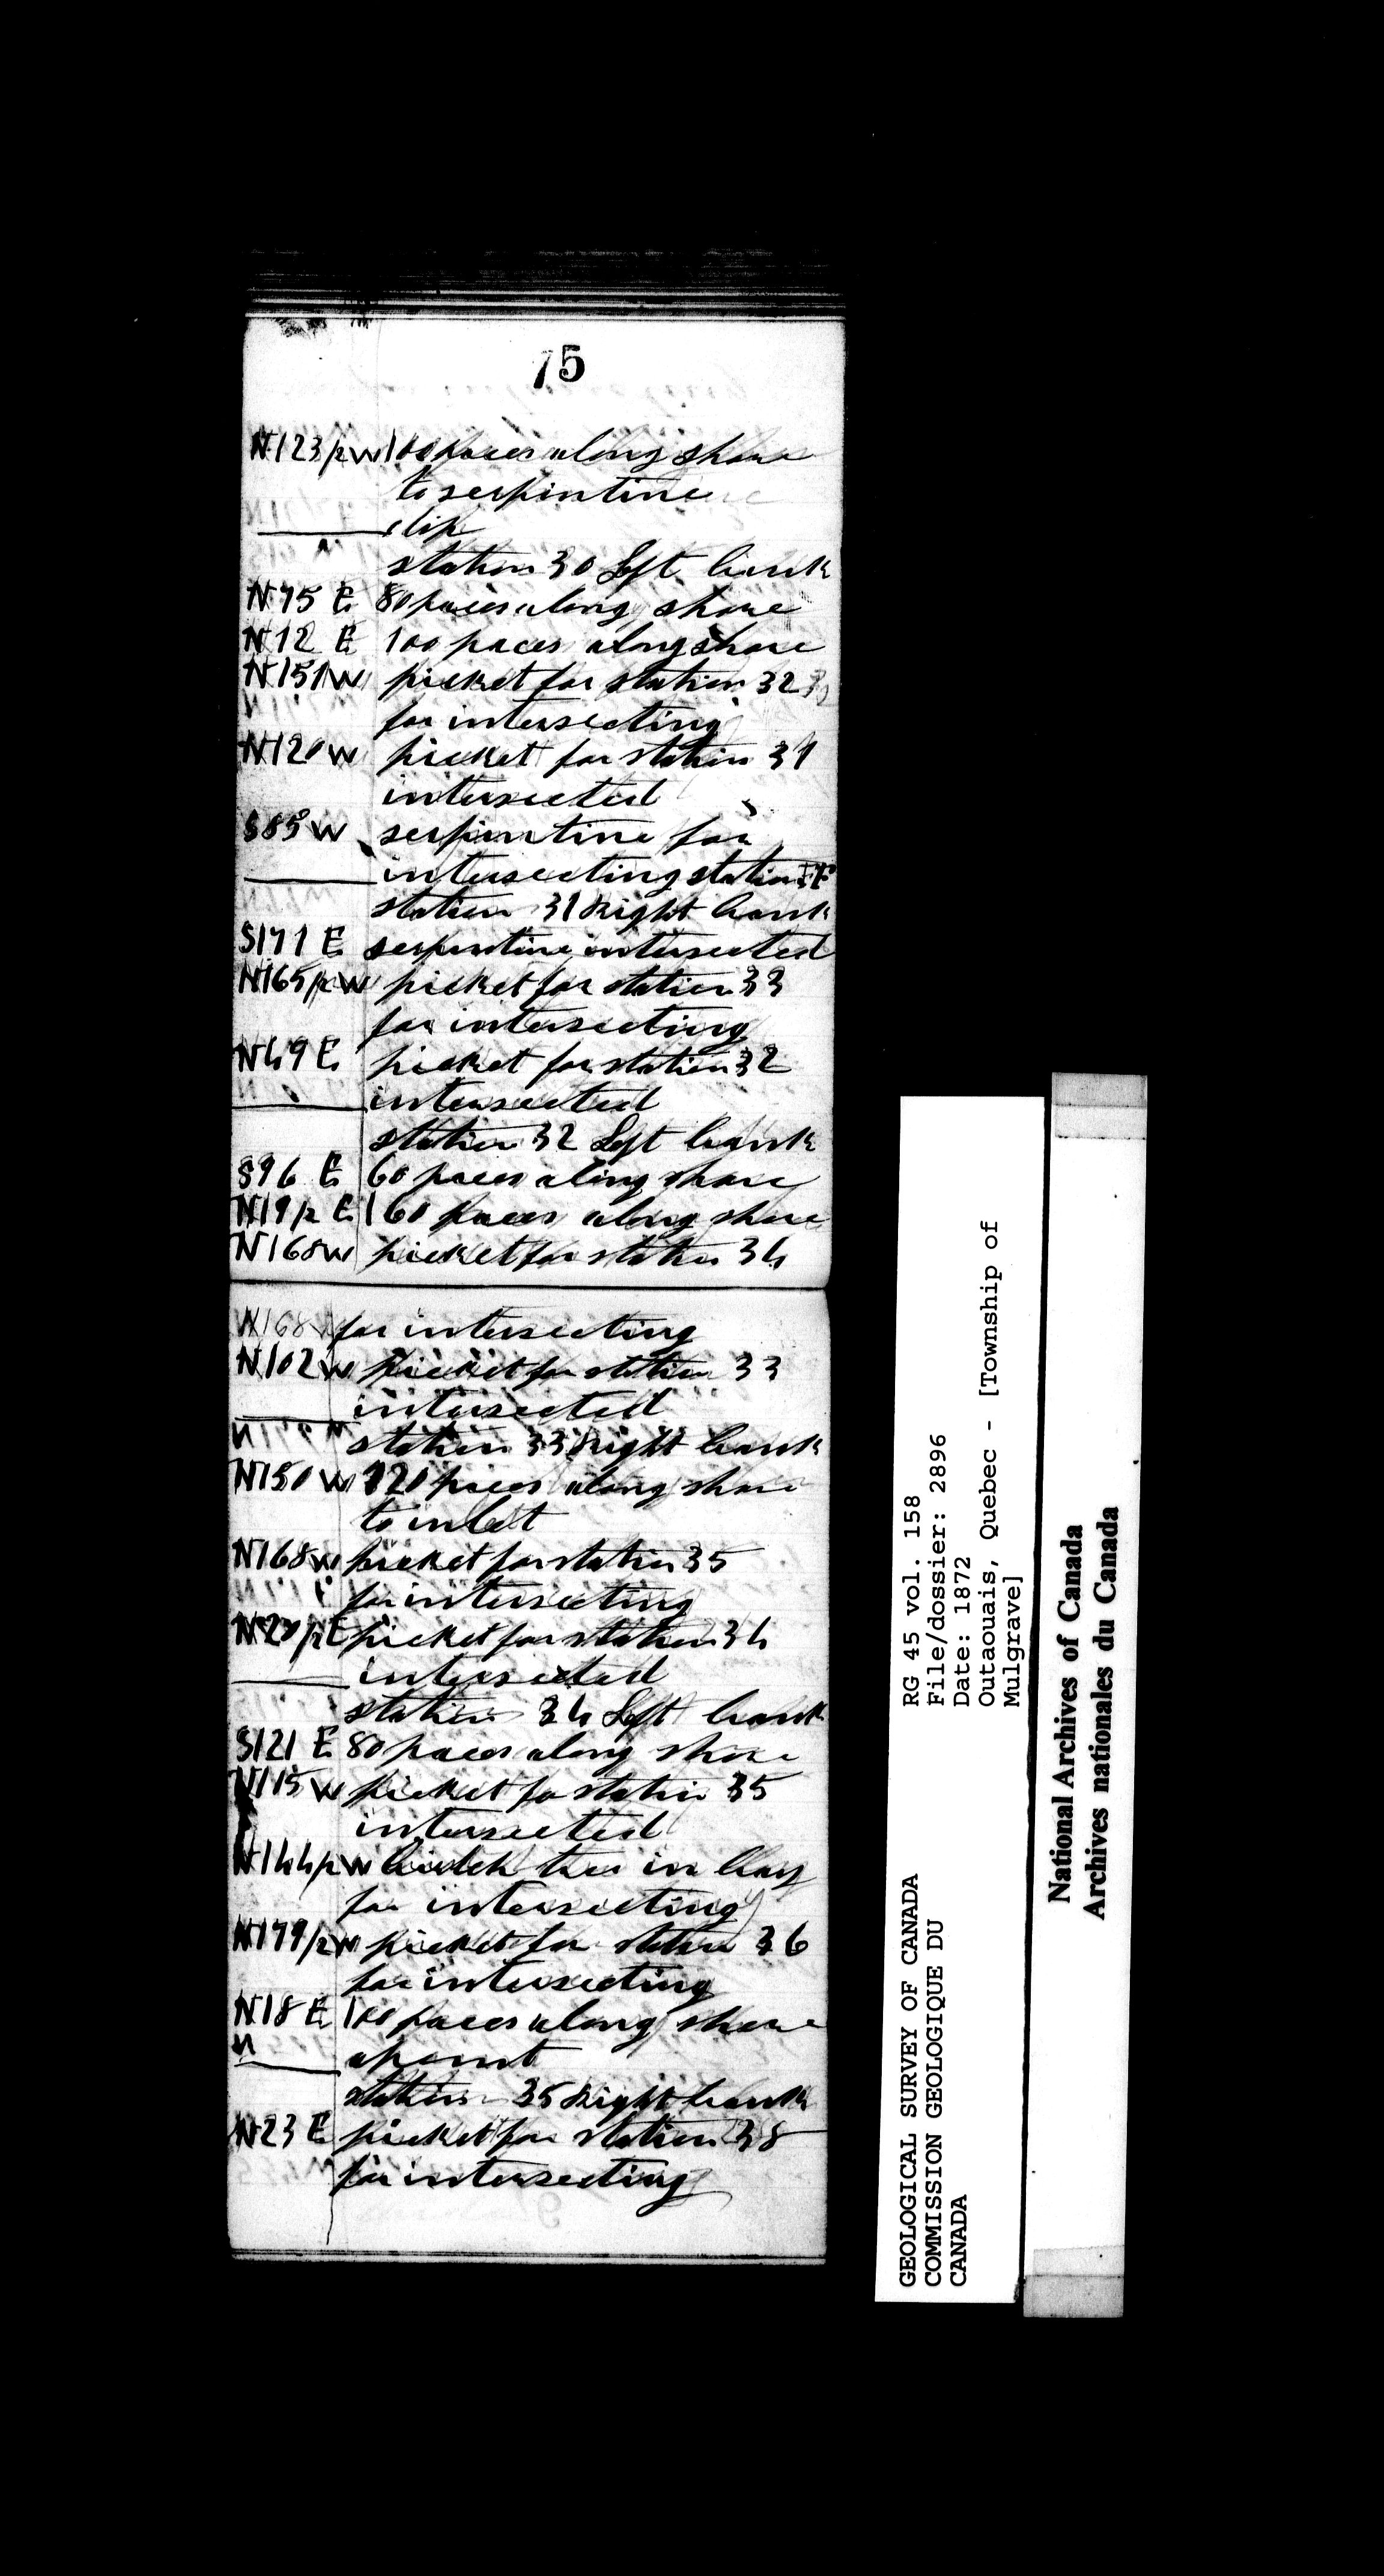 15
N123/2W 100 paces along shore
to serpintine
dip
station 30 Left bank
N75 E 80 paces along shore
N12 E 100 paces along shore
N151W picket for station 32
for intersecting
N120W picket for station 31
intersected
S85W serpintine for
intersecting station
station 31 Right bank
S171 E serpintine intersected
N165/2W picket for station 33
for intersecting
N49 E picket for station 32
intersected
station 32 Left bank
S96 E 60 paces along shore
N19/2 E 160 paces along shore
N168W picket for station 34
N168 for intersecting
N102W picket for station 33
intersected
station 33 Right bank
N150W 120 paces along shore
to inlet
N168W picket for station 35
for intersecting
/2E picket for station 34
intersected
station 34 Left bank
S121 E 80 paces along shore
N115W picket fo station 35
intersected
N144/2W birtch tree in bay
for intersecting
N179/2W picket for station 36
for intersecting
N18 E 100 paces along shore
apoint
station 35 Right bank
N23 E picket for station 38
for intersecting
GEOLOGICAL SURVEY OF CANADA
COMMISSION GEOLOGIQUE DU
CANADA
RG 45 vol. 158
File/dossier: 2896
Date: 1872
Outaouais, Quebec - [Township of
Mulgrave]
National Archives of Canada
Archives nationales du Canada